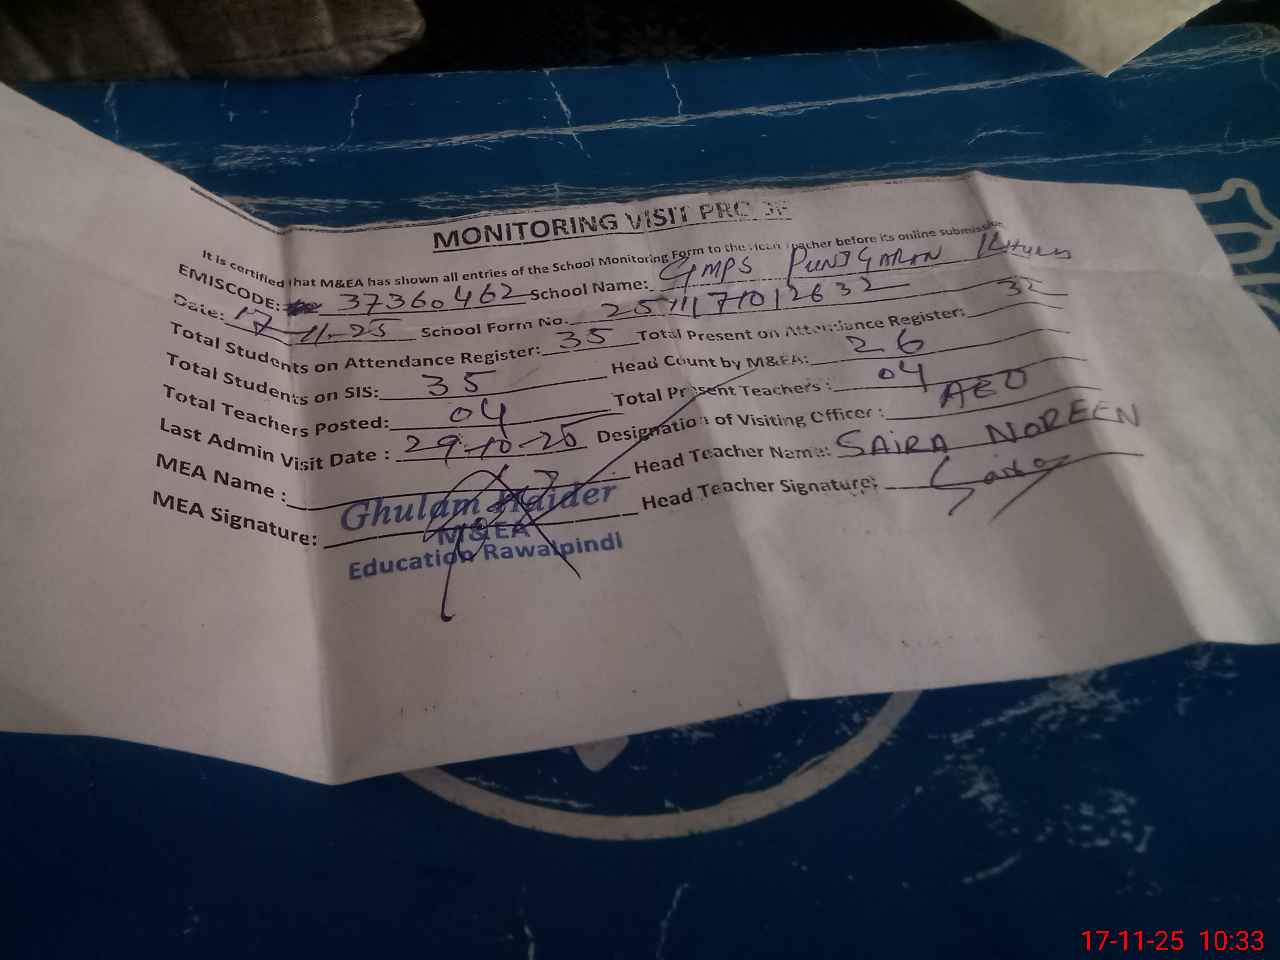 MONITORING VISIT PROOF
It is certified that M&EA has shown all entries of the School Monitoring Form to the Head Teacher before its online submission
EMISCODE: 37360462 School Name: GMPS PUNJGARAN
Date: 17-11-25 School Form No. 2511171012632
Total Students on Attendance Register: 35 Total Present on Attendance Register: 32
Total Students on SIS: 35 Head Count by M&EA: 26
Total Teachers Posted: 04 Total Present Teachers : 04
Last Admin Visit Date : 29-10-25 Designation of Visiting Officer : AEO
MEA Name : Head Teacher Name: SAIRA NOREEN
MEA Signature: Head Teacher Signature: Saira
Ghulam Haider
M&EA
Education Rawalpindi
17-11-25 10:33